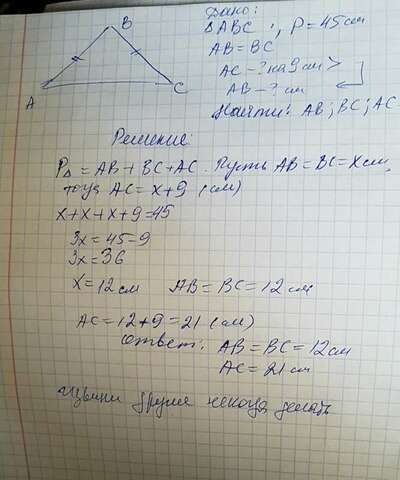 Дано:
ΔABC ; P=45см
AB=BC
AC-? на 9см>
AB-? см
Найти: AB; BC; AC
B
A
C
Решение:
PΔ=AB+BC+AC. Пусть AB=BC=Xсм,
тогда AC=X+9 (см)
X+X+X+9=45
3X=45-9
3X=36
X=12см AB=BC=12см
AC=12+9=21 (см)
Ответ: AB=BC=12см
AC=21см
Извини другие некогда делать